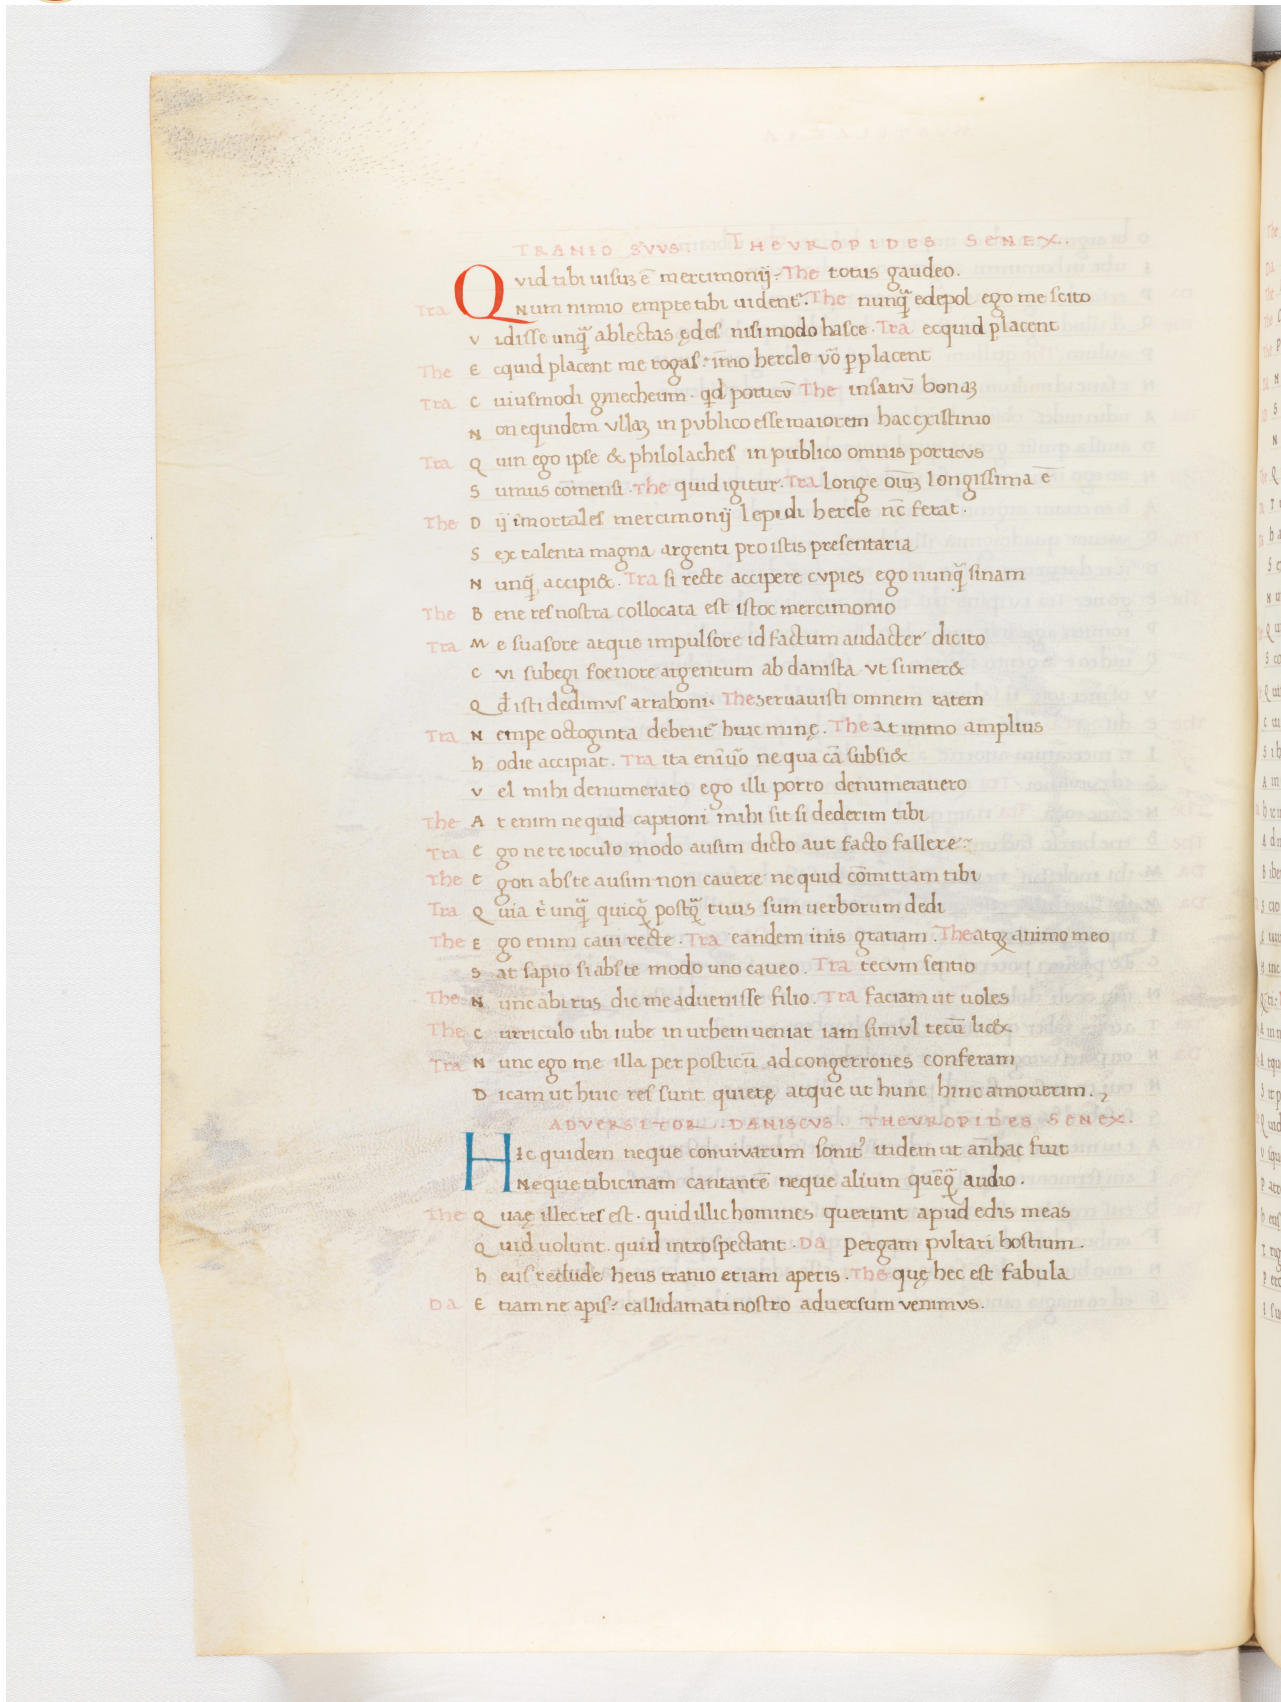 TRANIO SVVS. THEVROPIDES SENEX.
Qvid tibi uisuꝫ ē mercimonij. The totus gaudeo.
Tra Num nimio empte tibi uident᷑. The nunq̄ edepol ego me scito
Vidisse unq̄ ablectas ędes nisi modo hasce. Tra ecquid placent
The Ecquid placent me rogas? īmo hercle vō ꝑplacent
Tra Cuiusmodi gynecheum. qd porticū The insanū bonaꝫ
Non equidem vllaꝫ in pvblico esse maiorem hac existimo
Tra Quin ego ipse & philolaches in publico omnis porticvs
Sumus cōmensi. The quid igitur. Tra longe oīuꝫ longissima ē
The Dij īmortales mercimonij lepidi hercle nc̄ ferat.
Sex talenta magna argenti pro istis presentaria
Nunq̄ accipi&. Tra si recte accipere cvpies ego nunq̄ sinam
The Bene res nostra collocata est istoc mercimonio
Tra Me suasore atque impulsore id factum audacter dicito
Cvi subegi foenore argentum ab danista vt sumer&
Qd̄ isti dedimvs arraboni. The seruauisti omnem ratem
Tra Nempe octoginta debent᷑ huic minę. The at immo amplius
hodie accipiat. Tra ita enīuo ne qua cā subsi&
Vel mihi denumerato ego illi porro denumerauero
The At enim ne quid captioni mihi sit si dederim tibi
Tra Ego ne te ioculo modo ausim dicto aut facto fallere
The Egon abs te ausim non cauere ne quid cōmittam tibi
Tra Quia t̄ unq̄ quicq̄ postq̄ tuus sum uerborum dedi
The Ego enim caui recte. Tra eandem inis gratiam. The atqꝫ animo meo
Sat sapio si abs te modo uno caueo. Tra tecvm sentio
The Nunc abi rus dic me aduenisse filio. Tra faciam ut uoles
The Curriculo ubi iube in urbem ueniat iam simvl tecū lic&
Tra Nunc ego me illa per posticū ad congerrones conferam
Dicam ut huic res sunt quietę atque ut hunc hinc amouerim.
ADVERSITOR. DANISCVS. THEVROPIDES SENEX.
Hic quidem neque conuiuarum sonitꝰ itidem ut an̄hac fuit
Neque tibicinam cantantē neque alium quēq̄ audio.
The Quaę illec res est. quid illic homines querunt apud edis meas
Quid uolunt. quid introspectant. Da pergam pvltari hostium.
heus reclude heus tranio etiam aperis. The quę hec est fabula
Da Etiam ne aꝑis? callidamati nostro aduersum venimvs.